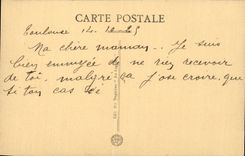 CARTE POSTALE
Toulouse
Ma chère maman.. Je suis
bien ennuyée de ne rien recevoir
de toi, malgré ça j'ose croire que
si ton cas